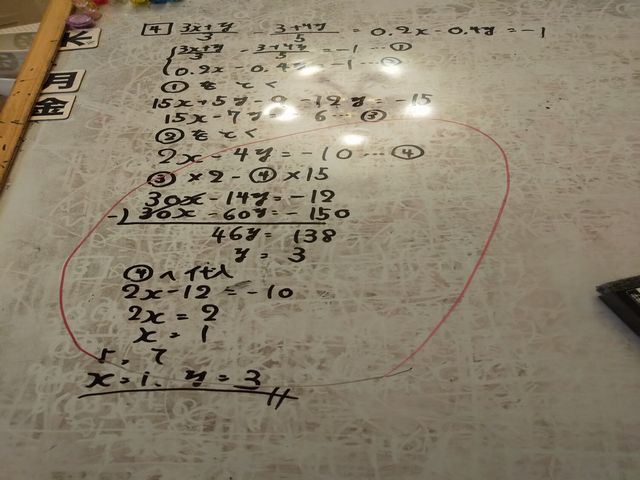 木
月
金
4 (3x+y)/3 - (3+4y)/5 = 0.2x-0.4y=-1
{ (3x+y)/3 - (3+4y)/5 = -1 … ①
0.2x-0.4y=-1 … ②
①をとく
15x+5y-9-12y=-15
15x-7y= 6 … ③
②をとく
2x-4y=-10 … ④
③×2-④×15
30x-14y=-12
-) 30x-60y=-150
46y= 138
y= 3
④へ代入
2x-12=-10
2x=2
x=1
x=1. y=3